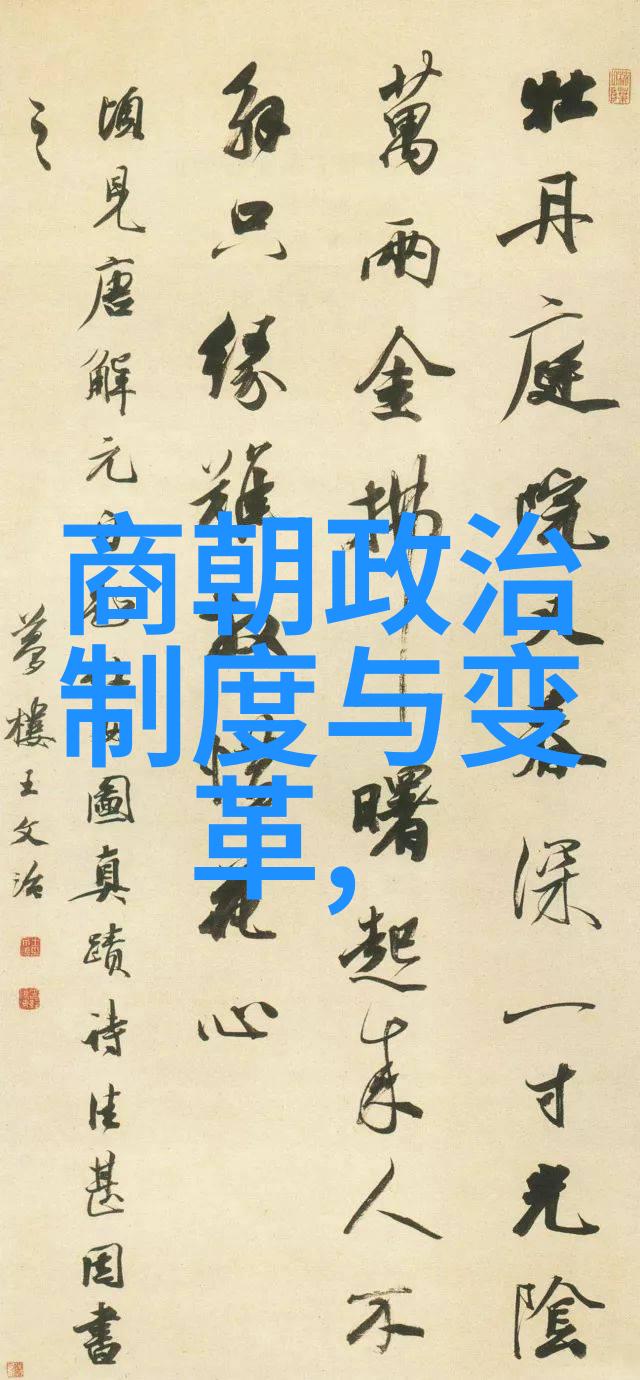 牡丹庭院又春深一寸光陰
萬兩金拂曙起來人不
解只緣難放惜花心
頃見唐解元
圖真蹟詩佳甚因書
之
夢樓王文治
商朝政治
制度与变
革,